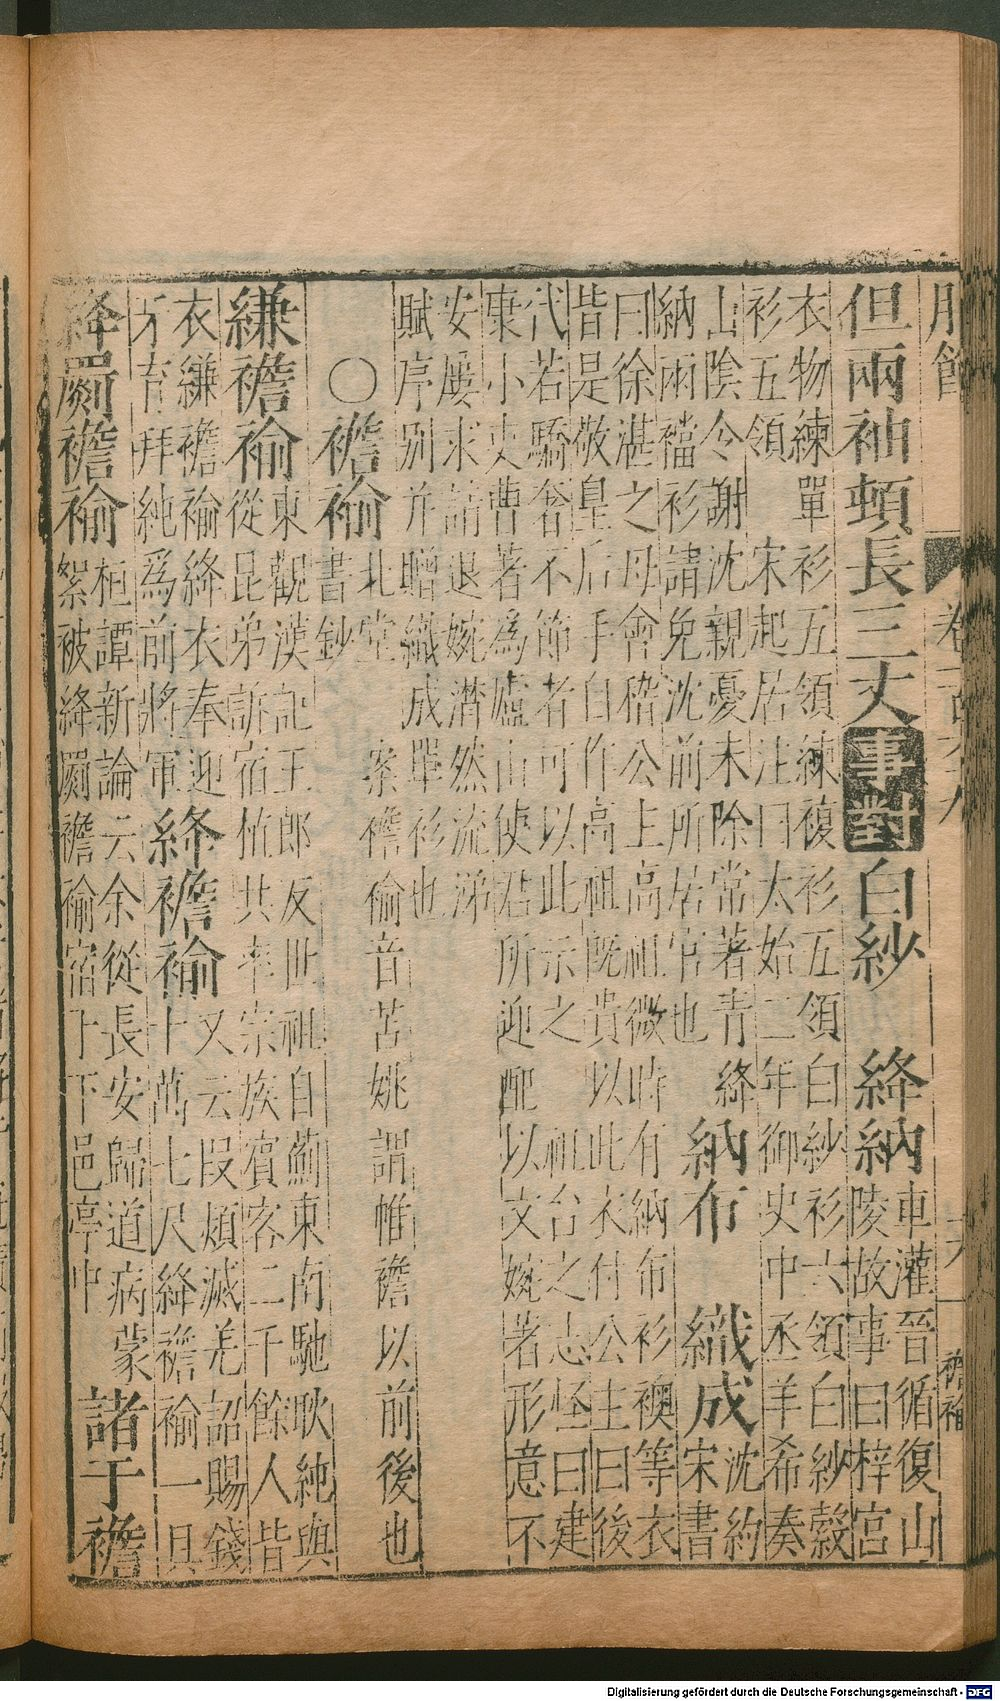 服飾
襜褕
但兩袖頓長三丈事對白紗 絳納車灌晉循復山
陵故事曰梓宮
衣物練單衫五領練複衫五領白紗衫六領白紗縠
衫五領 宋起居注曰太始二年御史中丞羊希奏
山陰令謝沈親憂未除常著青絳
納兩襠衫請免沈前所居官也
納布 織成沈約
宋書
曰徐湛之母會稽公主高祖微時有納布衫襖等衣
皆是敬皇后手自作高祖既貴以此衣付公主曰後
代若驕奢不節者可以此示之 祖台之志怪曰建
康小史曹著爲廬山使君所迎配以女婉著形意不
安屢求請退婉潸然流涕
賦序別并贈織成單衫也
○襜褕北堂
書鈔
案襜褕音苦姚謂帷襜以前後也
縑襜褕東觀漢記王郎反世祖自薊東南馳耿純與
從昆弟訢宿植共率宗族賓客二千餘人皆
衣縑襜褕絳衣奉迎
於育拜純爲前將軍
絳襜褕又云段熲滅羌詔賜錢
十萬七尺絳襜褕一具
絳罽襜褕桓譚新論云余從長安歸道病蒙
絮被絳罽襜褕宿下下邑亭中
諸于襜
Digitalisierung gefördert durch die Deutsche Forschungsgemeinschaft - DFG